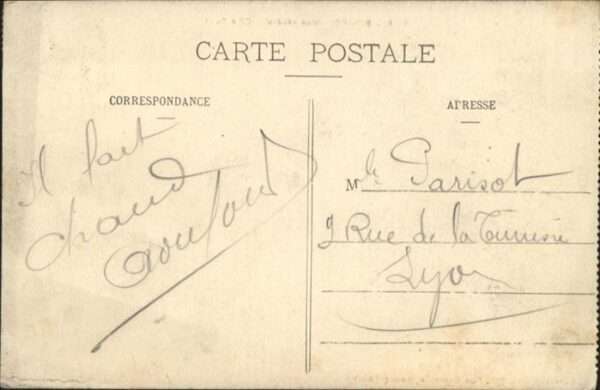 CARTE POSTALE
CORRESPONDANCE
Il fait
chaud
ADRESSE
Mlle Parisot
Rue de la Tunisie
Lyon